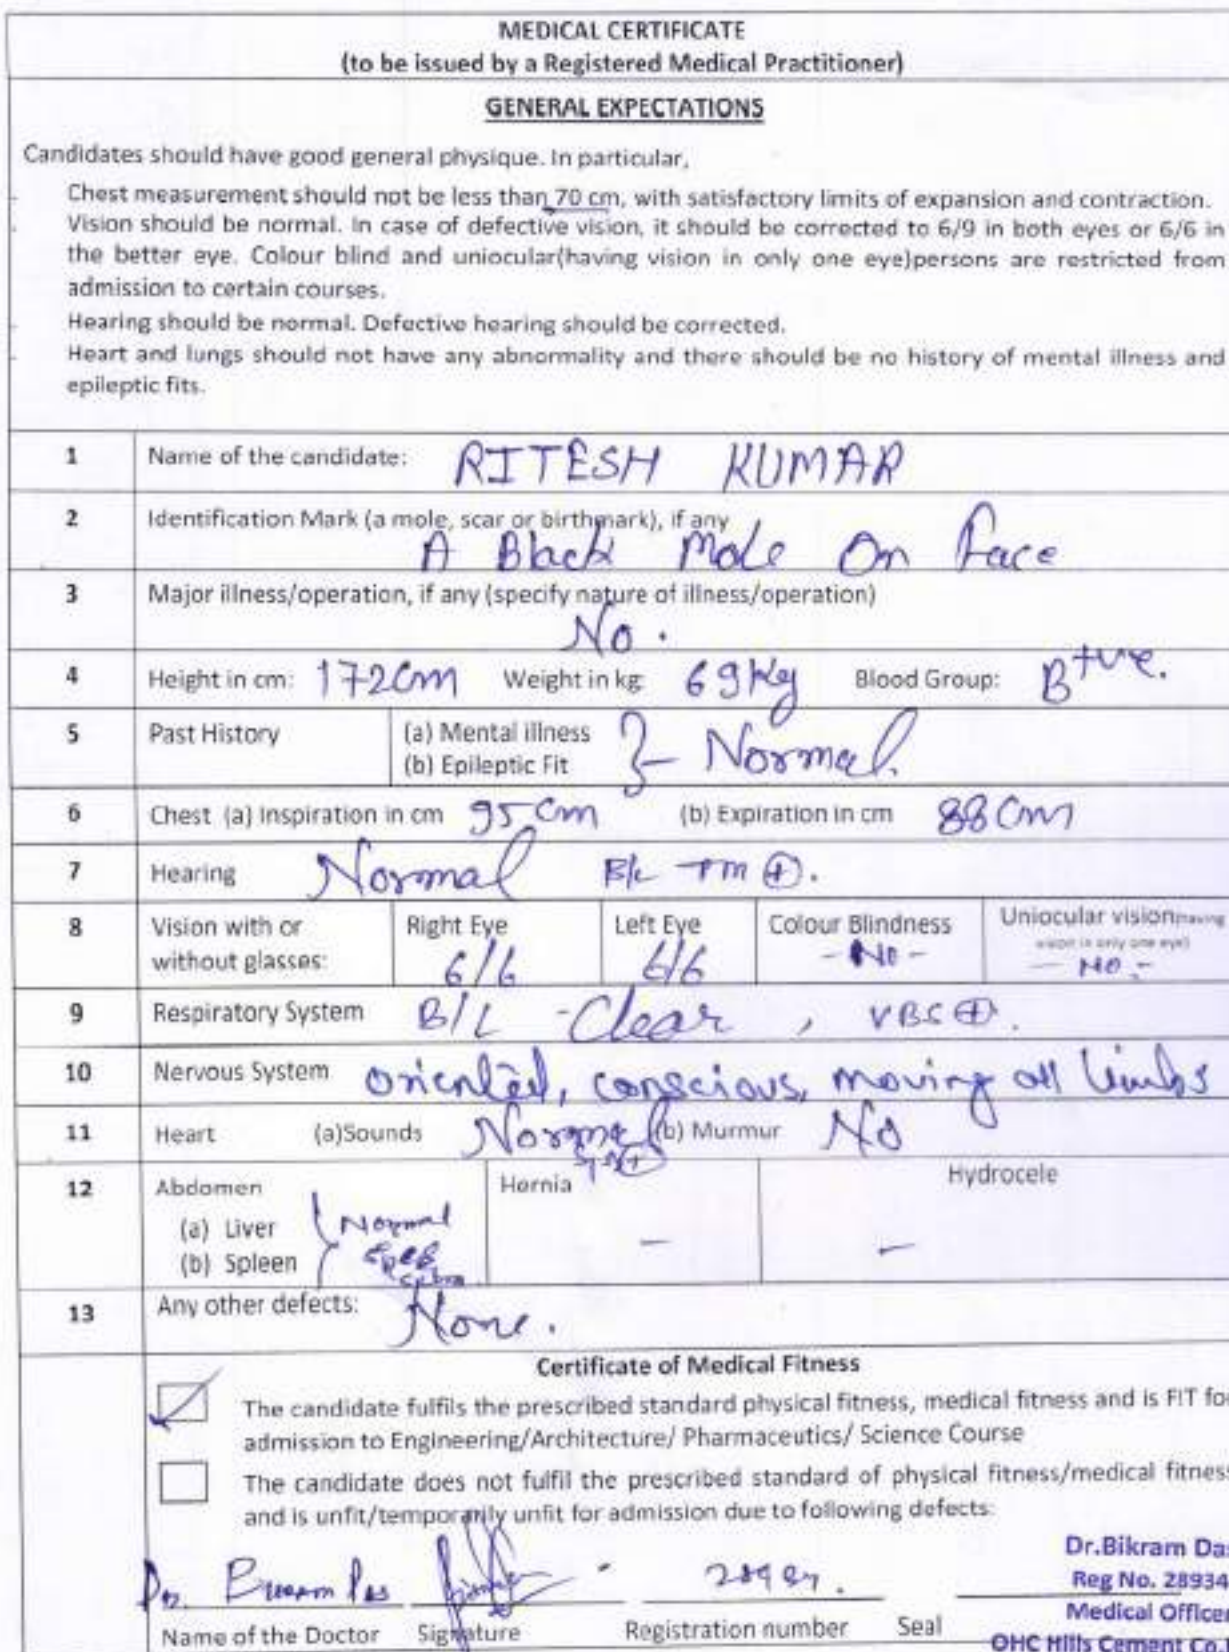 MEDICAL CERTIFICATE
(to be issued by a Registered Medical Practitioner)
GENERAL EXPECTATIONS
Candidates should have good general physique. In particular,
Chest measurement should not be less than 70 cm, with satisfactory limits of expansion and contraction.
Vision should be normal. In case of defective vision, it should be corrected to 6/9 in both eyes or 6/6 in
the better eye. Colour blind and uniocular(having vision in only one eye)persons are restricted from
admission to certain courses.
Hearing should be normal. Defective hearing should be corrected.
Heart and lungs should not have any abnormality and there should be no history of mental illness and
epileptic fits.
1 Name of the candidate: RITESH KUMAR
2 Identification Mark (a mole, scar or birthmark), if any
A Black Mole On Face
3 Major illness/operation, if any (specify nature of illness/operation)
No.
4 Height in cm: 172cm Weight in kg: 69Kg Blood Group: B+ve.
5 Past History (a) Mental illness
(b) Epileptic Fit } - Normal.
6 Chest (a) Inspiration in cm 95 Cm (b) Expiration in cm 88 Cm
7 Hearing Normal B/L TM ⊕.
8 Vision with or without glasses: Right Eye 6/6 Left Eye 6/6 Colour Blindness - No - Uniocular vision(having vision in only one eye) - NO -
9 Respiratory System B/L - Clear, VBS ⊕.
10 Nervous System oriented, conscious, moving all limbs
11 Heart (a)Sounds Normal (b) Murmur No
12 Abdomen Hernia - Hydrocele -
(a) Liver } Normal
(b) Spleen
13 Any other defects: None.
Certificate of Medical Fitness
The candidate fulfils the prescribed standard physical fitness, medical fitness and is FIT for
admission to Engineering/Architecture/ Pharmaceutics/ Science Course
The candidate does not fulfil the prescribed standard of physical fitness/medical fitness
and is unfit/temporarily unfit for admission due to following defects:
Dr.Bikram Das
Reg No. 28934
Medical Officer
OHC Hills Cement Co.
Name of the Doctor Signature Registration number Seal